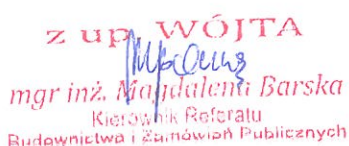 z up. WÓJTA
mgr inż. Magdalena Barska
Kierownik Referatu
Budownictwa i Zamówień Publicznych